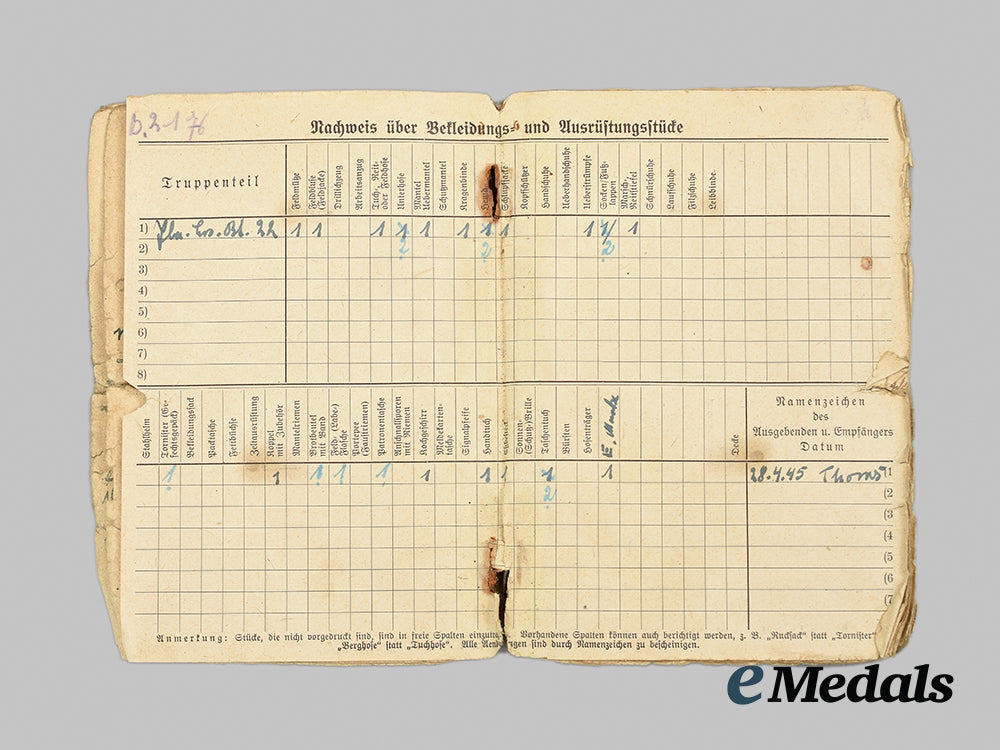 D. 2-1 76
Nachweis über Bekleidungs- und Ausrüstungsstücke
Truppenteil
Feldmütze
Feldbluse (Feldjacke)
Drillichzeug
Arbeitsanzug
Tuch-, Reit- oder Feldhose
Unterhose
Mantel Uebermantel
Schutzmantel
Kragenbinde
Hemd
Schlupfjacke
Kopfschützer
Handschuhe
Ueberhandschuhe
Ueberstrümpfe
Socken/Fußlappen
Marsch-, Reitstiefel
Schnürschuhe
Laufschuhe
Filzschuhe
Leibbinde
1) 22 1 1 1 1 1 1 1 1 1 1 1
2) 2 2 2
3)
4)
5)
6)
7)
8)
Stahlhelm
Tornister (Gefechtsgepäck)
Bekleidungssack
Packtasche
Fettbüchse
Zeltausrüstung
Koppel mit Zubehör
Mantelriemen
Brotbeutel mit Band
Feld- (Labe-) Flasche
Portepee (Faustriemen)
Patronentasche
Anschnallsporen mit Riemen
Kochgeschirr
Meldekartentasche
Signalpfeife
Handtuch
Sonnen- (Schutz-) Brille
Taschentuch
Bürsten
Hosenträger
E.
Decke
Namenzeichen
des
Ausgebenden u. Empfängers
Datum
1 1 1 1 1 1 1 1 1 1 28.4.45 Thoms (1
2 (2
(3
(4
(5
(6
(7
Anmerkung: Stücke, die nicht vorgedruckt sind, sind in freie Spalten Vorhandene Spalten können auch berichtigt werden, z. B. „Rucksack" statt „Tornister"
„Berghose" statt „Tuchhose". Alle sind durch Namenzeichen zu bescheinigen.
eMedals